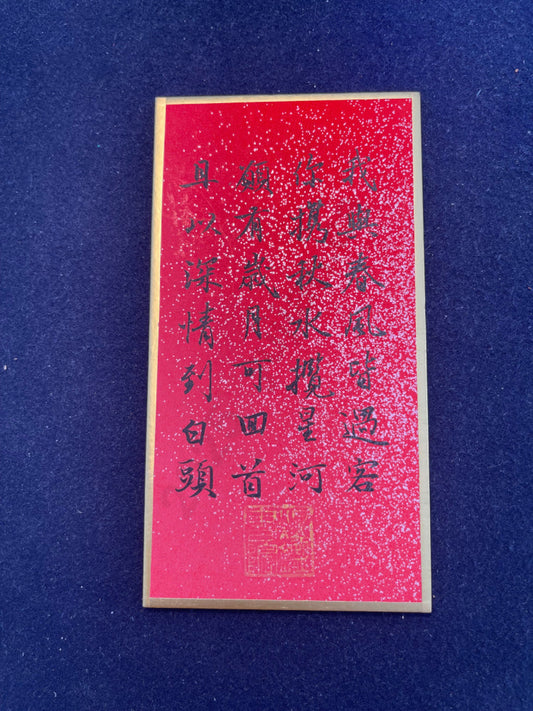 我與春風皆過客
你攜秋水攬星河
願有歲月可回首
且以深情到白頭